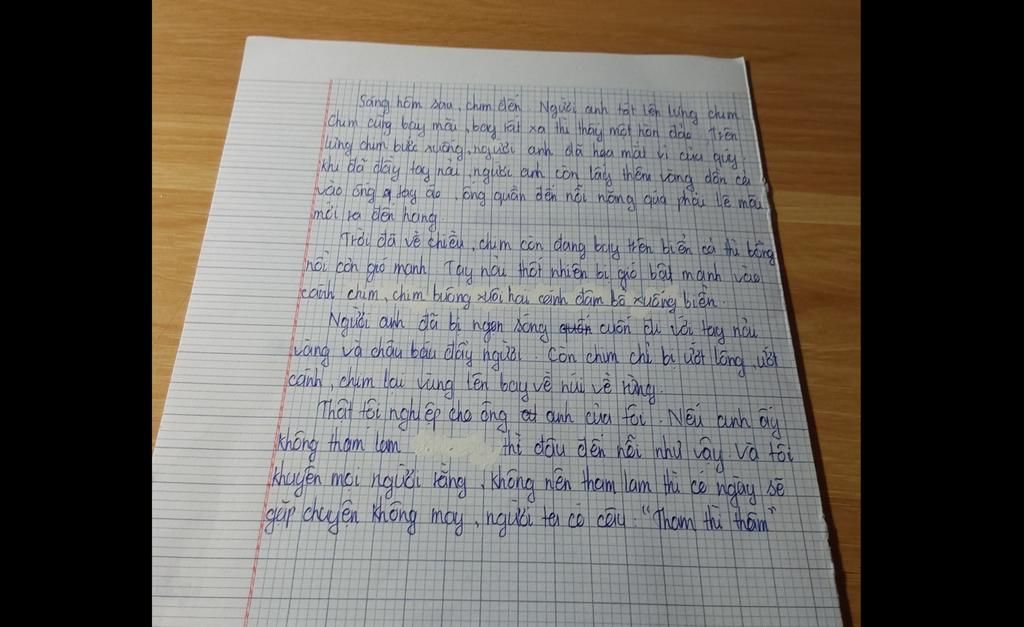 Sáng hôm sau, chim đến. Người anh tót lên lưng chim
Chim cũng bay mãi, bay rất xa thì thấy một hòn đảo. Trên
lưng chim bước xuống, người anh đã hoa mắt vì của quý,
khi đã đầy tay nải, người anh còn lấy thêm vàng dồn cả
vào ống tay áo, ống quần đến nỗi nặng quá phải lê mãi
mới ra đến hang.
Trời đã về chiều, chim còn đang bay trên biển cả thì bỗng
nổi cơn gió mạnh. Tay nải thốt nhiên bị gió bật mạnh vào
cánh chim, chim buông xuôi hai cánh đâm bổ xuống biển.
Người anh đã bị ngọn sóng cuốn đi với tay nải
vàng và châu báu đầy người. Còn chim chỉ bị ướt lông, ướt
cánh, chim lại vùng lên bay về núi về rừng.
Thật tội nghiệp cho ông anh của tôi. Nếu anh ấy
không tham lam thì đâu đến nỗi như vậy và tôi
khuyên mọi người rằng, không nên tham lam thì có ngày sẽ
gặp chuyện không may, người ta có câu: "Tham thì thâm"